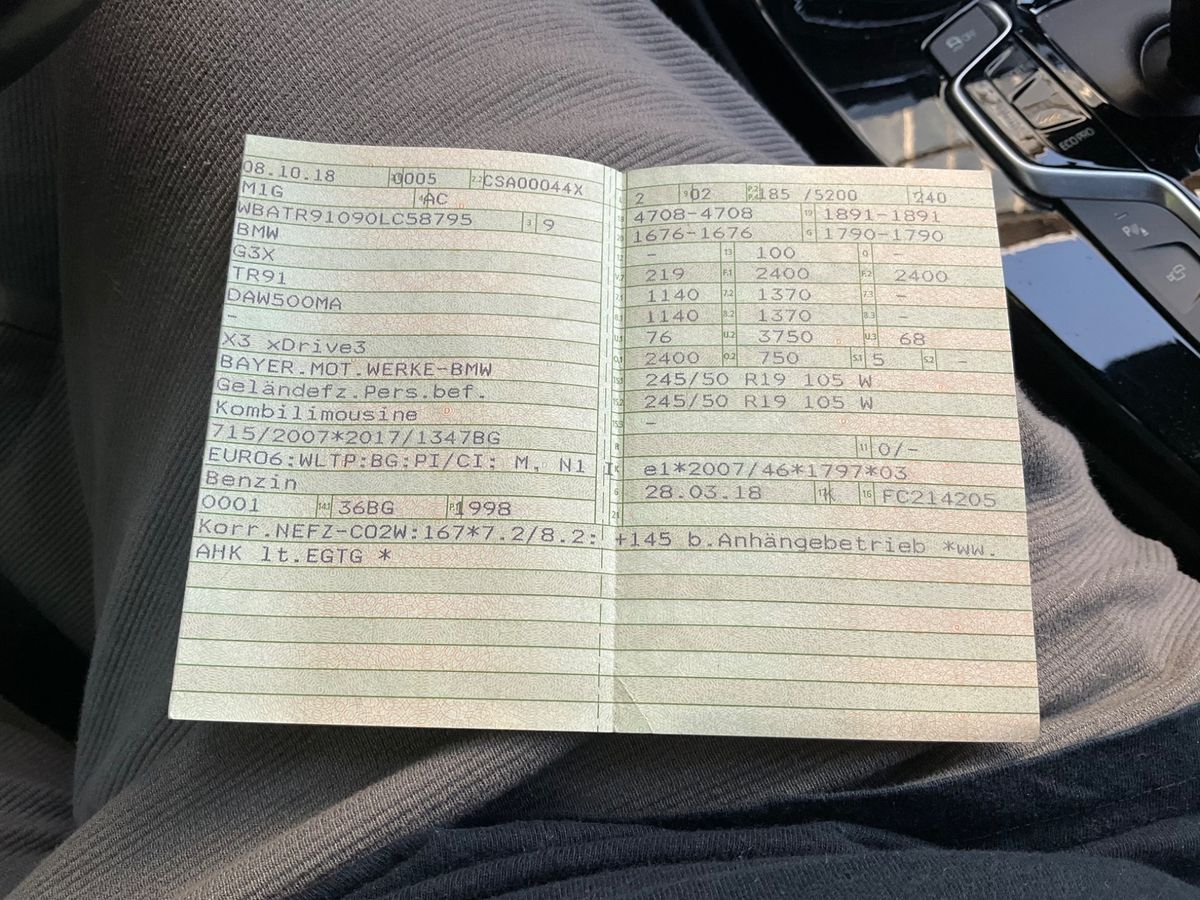 08.10.18 0005 2.2 CSA00044X
M1G AC
WBATR91090LC58795 3 9
BMW
G3X
TR91
DAW500MA
-
X3 xDrive3
BAYER.MOT.WERKE-BMW
Geländefz.Pers.bef.
Kombilimousine
715/2007*2017/1347BG
EURO6:WLTP:BG:PI/CI: M, N1 I
Benzin
0001 14.1 36BG P.1 1998
Korr.NEFZ-CO2W:167*7.2/8.2: +145 b.Anhängebetrieb *ww.
AHK lt.EGTG *
2 9 02 P.2 P.4 185 /5200 240
18 4708-4708 19 1891-1891
20 1676-1676 G 1790-1790
12 - 13 100 Q -
V.7 219 F.1 2400 F.2 2400
7.1 1140 7.2 1370 7.3 -
8.1 1140 8.2 1370 8.3 -
U.1 76 U.2 3750 U.3 68
O.1 2400 O.2 750 S.1 5 S.2 -
15.1 245/50 R19 105 W
15.2 245/50 R19 105 W
15.3 -
R 11 0/-
K e1*2007/46*1797*03
6 28.03.18 17 K 16 FC214205
21
ECO PRO
OFF
P